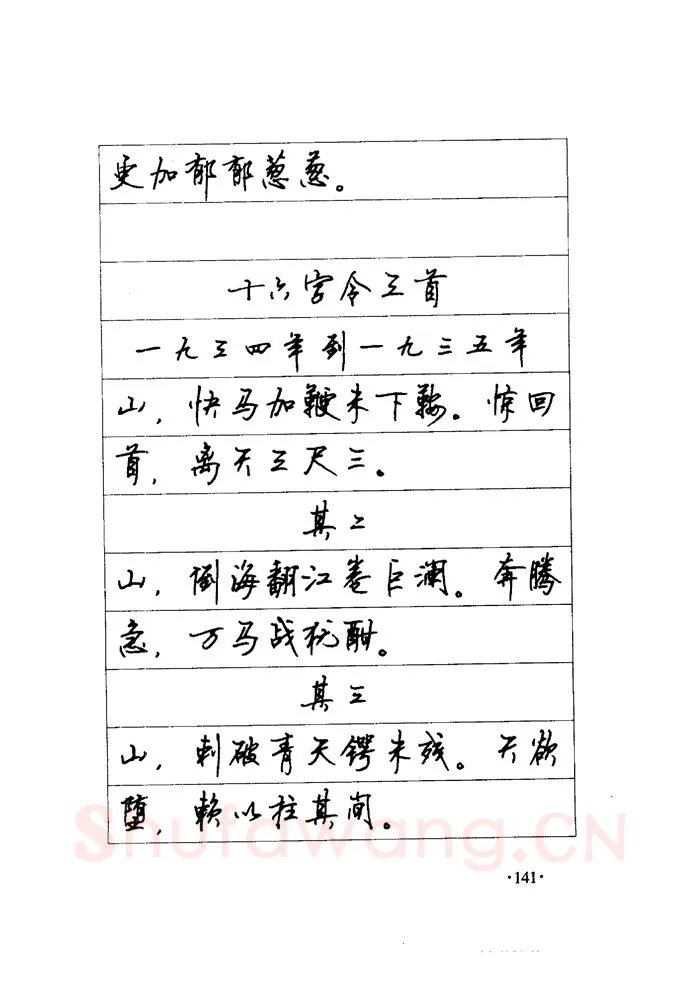 更加郁郁葱葱。
十六字令三首
一九三四年到一九三五年
山，快马加鞭未下鞍。惊回
首，离天三尺三。
其二
山，倒海翻江卷巨澜。奔腾
急，万马战犹酣。
其三
山，刺破青天锷未残。天欲
堕，赖以拄其间。
Shufawang.CN
·141·